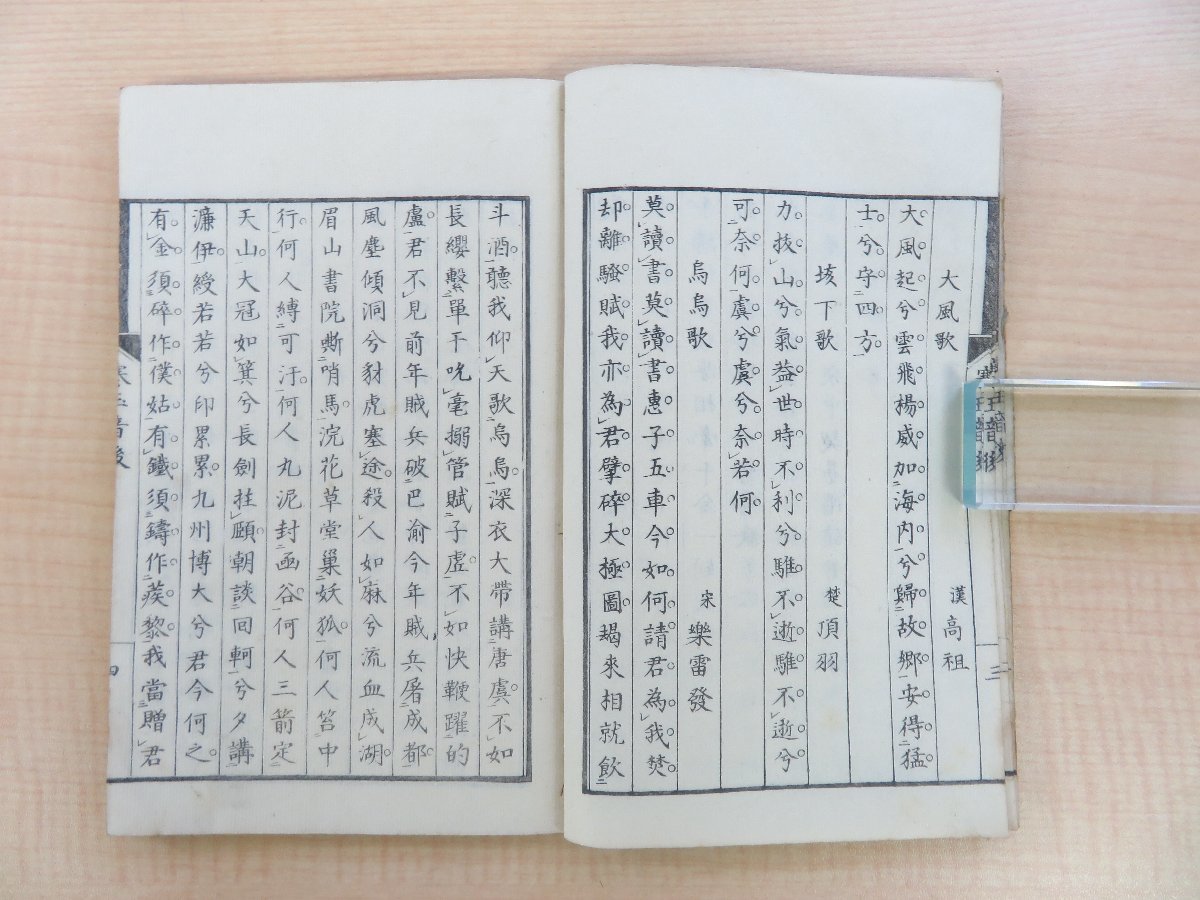 大風歌 漢高祖
大風起兮雲飛揚威加海内兮歸故鄉安得猛
士兮守四方
垓下歌 楚項羽
力拔山兮氣蓋世時不利兮騅不逝騅不逝兮
可奈何虞兮虞兮奈若何
烏烏歌 宋樂雷發
莫讀書莫讀書惠子五車今如何請君為我焚
却離騷賦我亦為君擘碎大極圖朅來相就飲
三
斗酒聽我仰天歌烏烏深衣大帶講唐虞不如
長纓繫單于吮毫搦管賦子虛不如快鞭躍的
盧君不見前年賊兵破巴渝今年賊兵屠成都
風塵傾洞兮豺虎塞途殺人如麻兮流血成湖
眉山書院嘶哨馬浣花草堂巢妖狐何人笞中
行何人縛可汗何人丸泥封函谷何人三箭定
天山大冠如箕兮長劍拄頤朝談回軻兮夕講
濂伊綬若若兮印累累九州博大兮君今何之
有金須碎作僕姑有鐵須鑄作蒺藜我當贈君
四